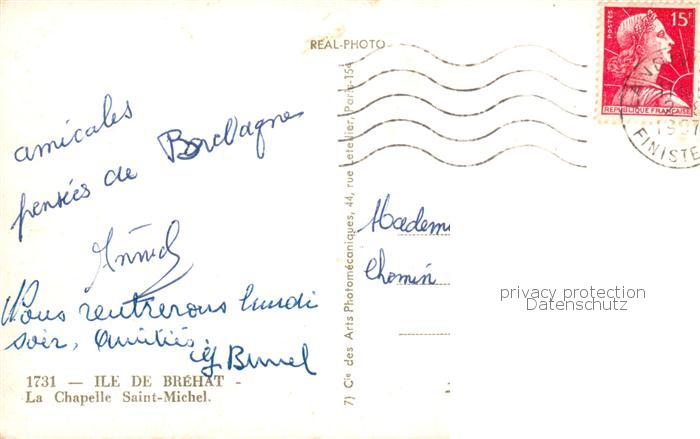 REAL-PHOTO
POSTES
15F
REPUBLIQUE FRANÇAISE
FINISTE
amicales
pensées de Bretagne
Annick
Nous rentrerons lundi
soir, Amitiés.
Madem
Chemin
privacy protection
Datenschutz
1731 — ILE DE BRÉHAT -
La Chapelle Saint-Michel.
7) Cie des Arts Photomécaniques, 44, rue Letellier, Paris-15e